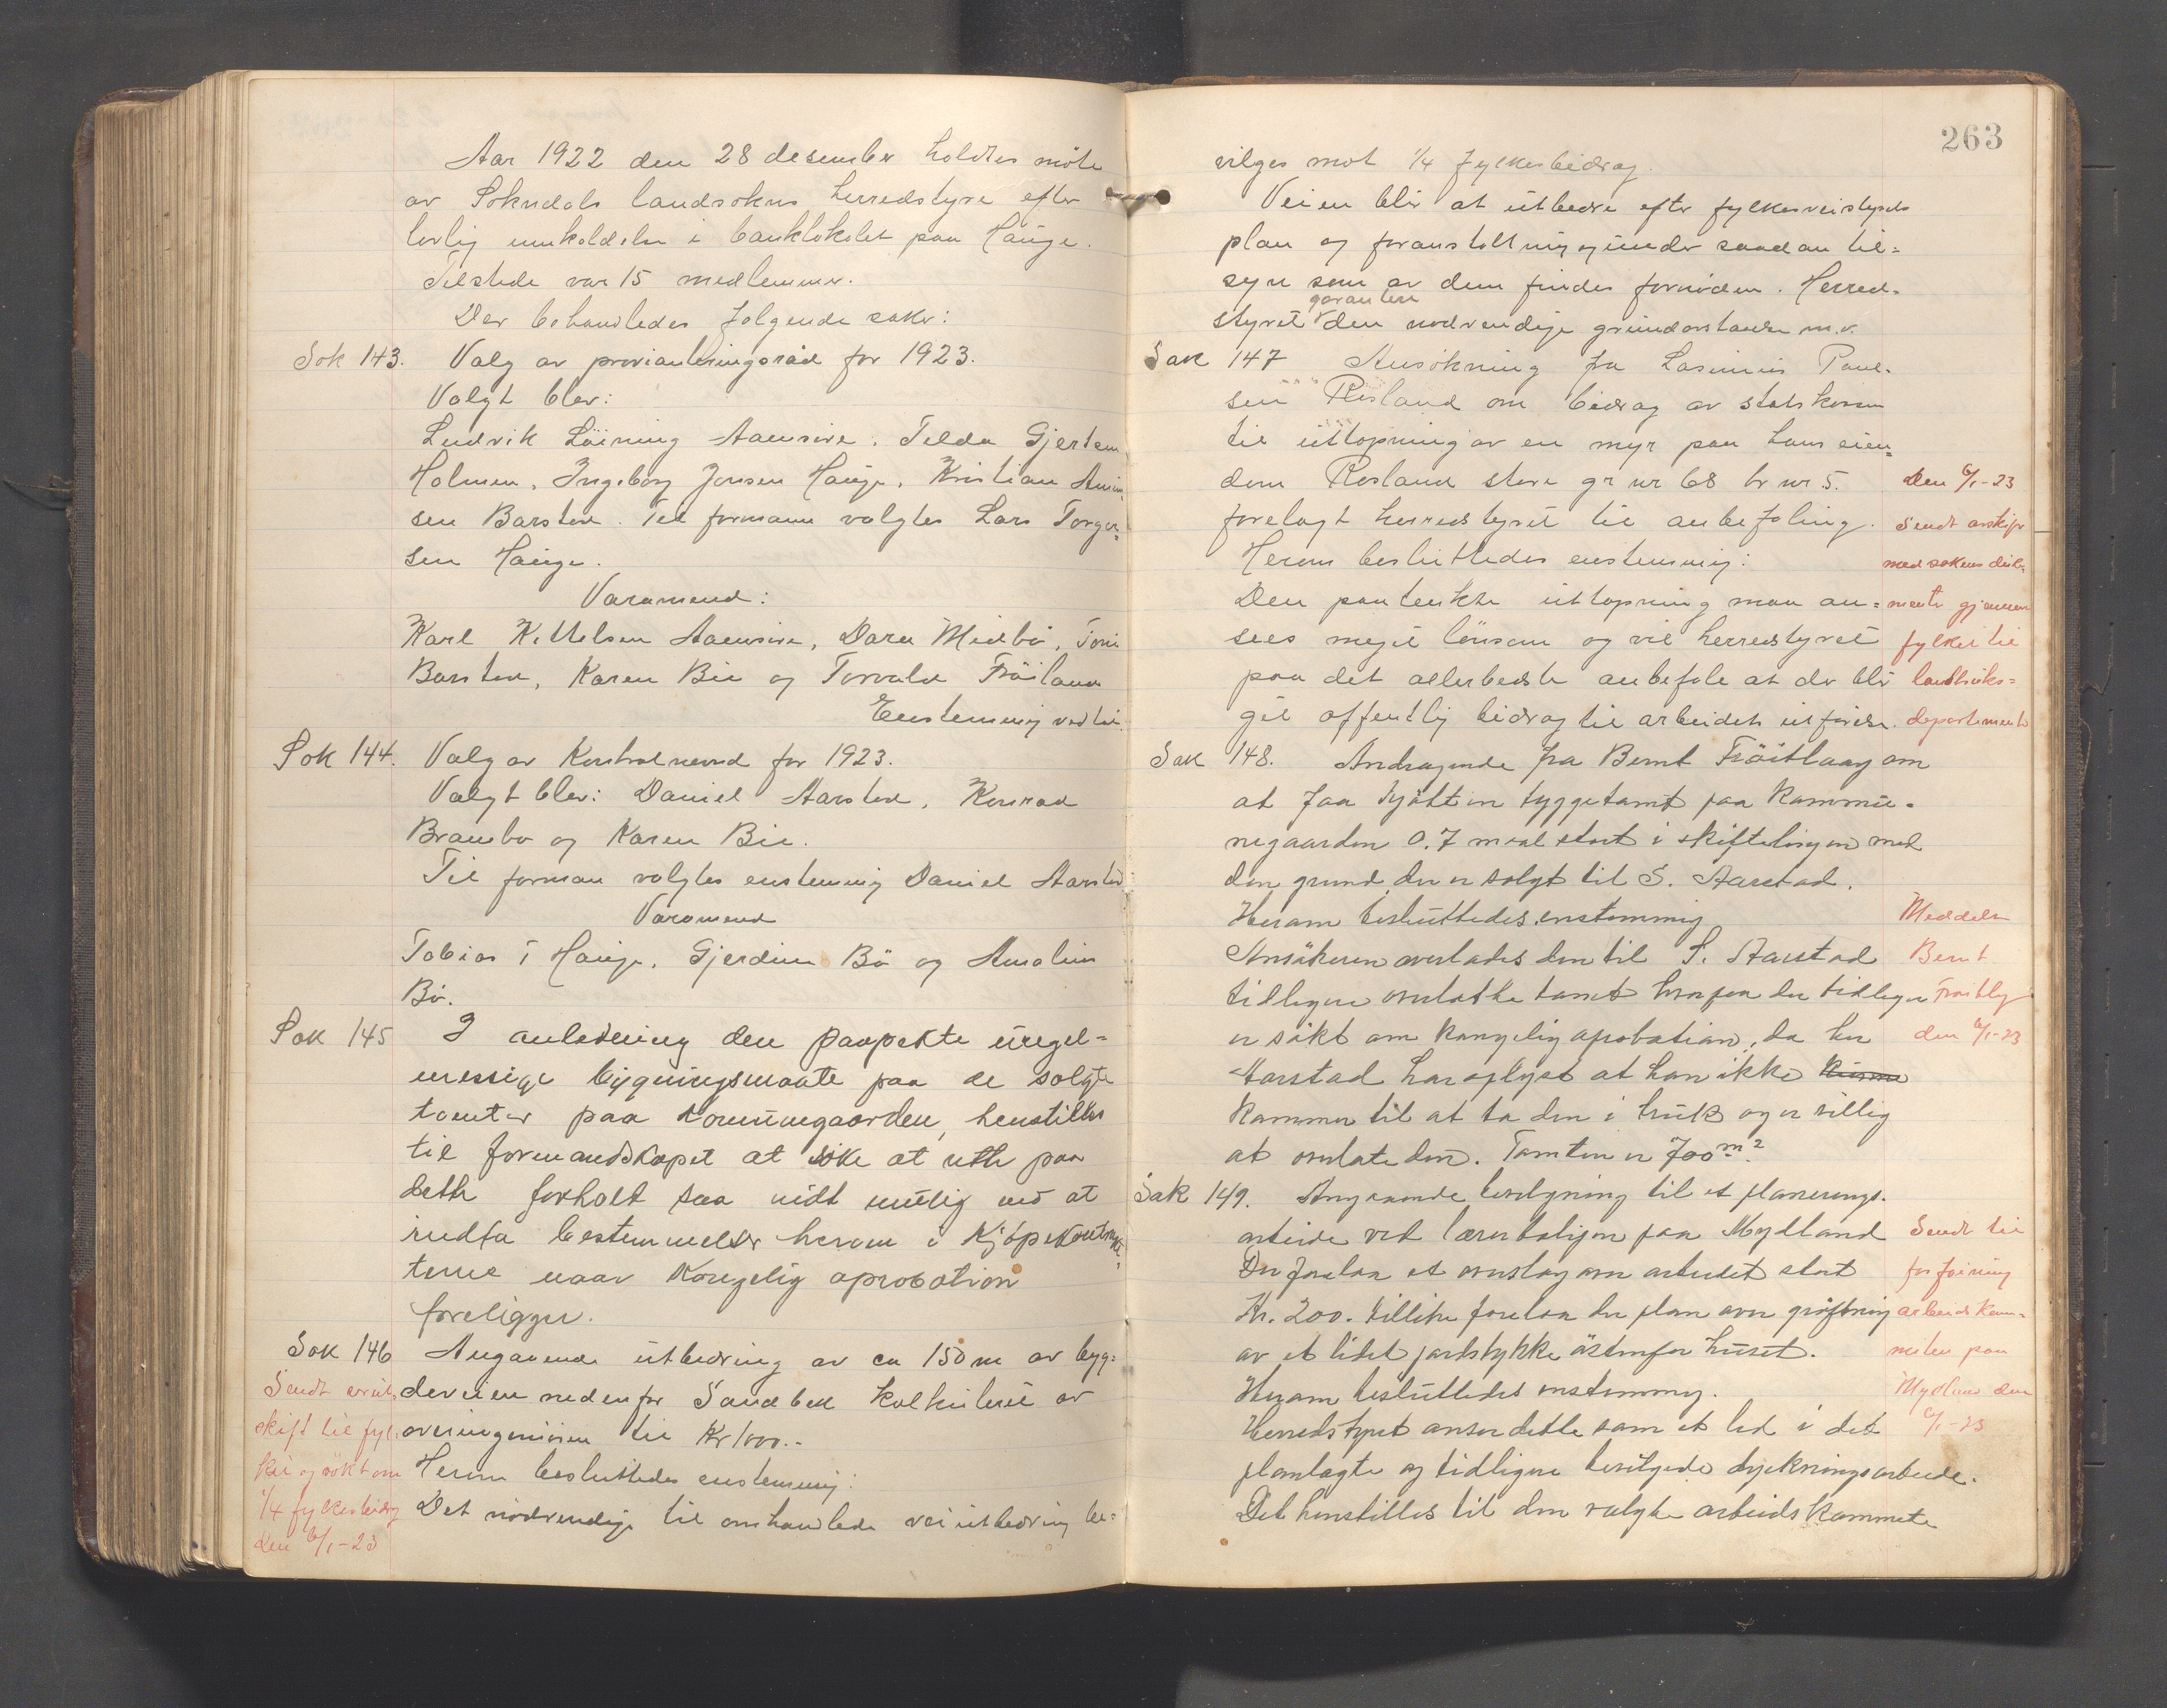 Aar 1922 den 28 desember holdtes möte
av Sokndals landsokns herredstyre efter
lovlig innkaldelse i banklokalet paa Hauge.
Tilstede var 15 medlemmer.
Der behandledes følgende saker:
Sak 143. Valg av provianteringsråd for 1923.
Valgt blev:
Ludvik Löining Aamsire. Tilda Gjertsen
Holmen, Ingeborg Jonsen Hauge, Kristian
sen Barstad. Til formann valgtes Lars Torger=
sen Hauge.
Varamend:
Karl Kittelsen Aamsire, Dara Midbö, Toni
Barstad, Karen Bie og Torvald Fröiland
Enstemmig vedtat.
Sak 144. Valg av Kontrolnevnd for 1923.
Valgt blev: Daniel Aarstad, Konrad
Brambo og Karen Bie.
Til forman valgtes enstemmig Daniel Aarstad
Varamend
Tobias T Hauge, Gjerdine Bö og Amalie
Bö.
Sak 145 I anledning den paapekte uregel=
messige bygningsmaate paa de solgte
tomter paa Kommunegaarden, henstilles
til formandskapet at söke at rette paa
dette forholt saa vidt mulig ved at
indta bestemmelser herom i Kjöpekontrak=
terne naar Kongelig aprobation
foreligger.
Sak 146 Angaaende utbedring av ca 150 m av byg=
deveien nedenfor Sandbek kalkulert av
overingeniören til Kr 1000.-
Herom besluttedes enstemmig:
Det nödvendige til omhandlede veiutbedring be=
Sendt avut=
skift til fyl=
ket og sökt om
1/4 fylkesbidrag
den 6/1-23
263
vilges mot 1/4 fylkesbidrag.
Veien blir at utbedre efter fylkesveistyrets
plan og foranstaltning og under saadan til=
syn som av dem findes fornöden. Herred=
styret garantere den nödvendige grundavstaaelse m.v.
Sak 147 Ansökning fra Rasmus Paul=
sen Rosland om bidrag av statskassen
til uttapning av en myr paa hans eien=
dom Rosland store gr nr 68 br nr 5.
forelagt herredstyret til anbefaling.
Herom besluttedes enstemmig:
Den paatenkte uttapning maa an=
sees meget lönsom og vil herredstyret
paa det allerbedste anbefale at der blir
git offentlig bidrag til arbeidets utförelse.
Den 6/1-23
Sendt avskift
med sakens doku=
menter gjennem
fylket til
landbruks=
departementet
Sak 148. Andragende fra Bernt Fröitlaug om
at faa kjöpt en byggetomt paa Kommu=
negaarden 0.7 maal stort i skiftelinjen med
den grund der er solgt til S. Aarstad.
Herom besluttedes enstemmig
Ansökeren overlades den til S. Aarstad
tidligere overlatte tomt hvorpaa der tidligere
er sökt om kongelig aprobation, da her
Aarstad har oplyst at han ikke
kommer til at ta den i bruk og er villig
at overlate den. Tomten er 700 m².
Meddelt
Bernt
den 6/1-23
Sak 149. Angaaende bevilgning til et planerings=
arbeide ved lærerboligen paa Mydland
Der forelaa et overslag over arbeidet stort
Kr. 200. tillike forelaa der plan over gröftning
av et litet jordstykke östenfor huset.
Herom besluttedes enstemmig.
Herredstyret anser dette som et led i det
planlagte og tidligere bevilgede dyrkningsarbeide.
Det henstilles til den valgte arbeidskommite
Sendt til
forföining
arbeidskom=
miteen paa
Mydland den
6/1-23